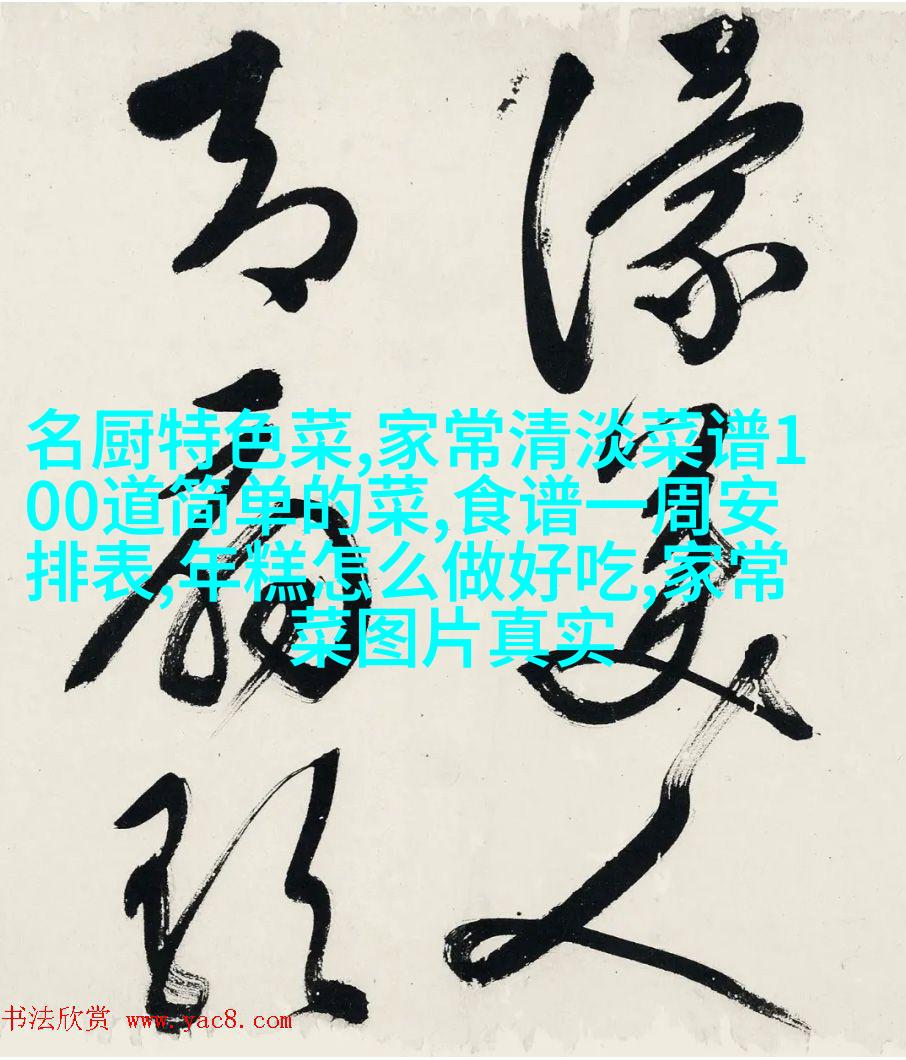 名厨特色菜,家常清淡菜谱1
00道简单的菜,食谱一周安
排表,年糕怎么做好吃,家常
菜图片真实
美人
书法欣赏 www.yac8.com